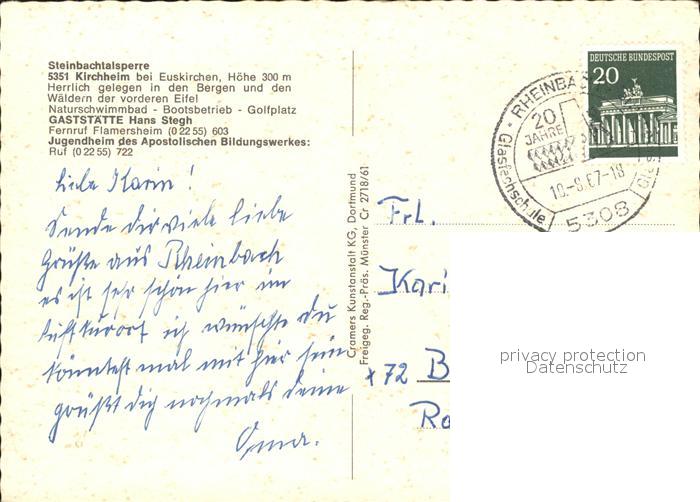 Steinbachtalsperre
5351 Kirchheim bei Euskirchen, Höhe 300 m
Herrlich gelegen in den Bergen und den
Wäldern der vorderen Eifel
Naturschwimmbad - Bootsbetrieb - Golfplatz
GASTSTÄTTE Hans Stegh
Fernruf Flamersheim (0 22 55) 603
Jugendheim des Apostolischen Bildungswerkes:
Ruf (0 22 55) 722
Liebe Karin!
Sende dir viele liebe
Grüße aus Rheinbach
es ist sehr schön hier im
Luftkurort ich wünschte du
könntest mal mit hier sein
grüßt dich nochmals deine
Oma.
Cramers Kunstanstalt KG, Dortmund
Freigeg. Reg.-Präs. Münster Cr 2718/61
DEUTSCHE BUNDESPOST
20
RHEINBA
20
JAHRE
Glasfachschule
10.-8.67-18
5308
Frl.
Kari
x 72 B
Ro
privacy protection
Datenschutz